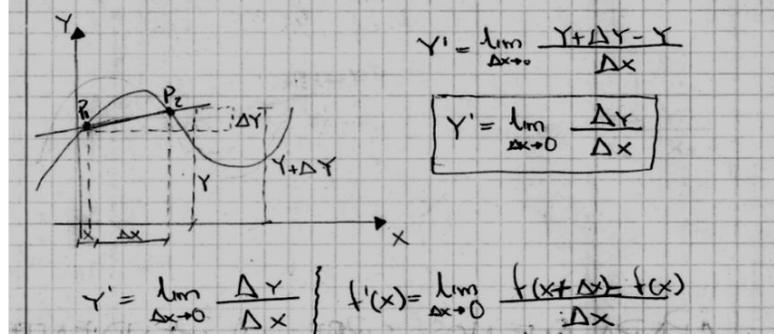 Y
P1 P2
ΔY
Y
Y+ΔY
x Δx
X
Y' = lim Δx→0 Y+ΔY-Y / Δx
Y' = lim Δx→0 ΔY / Δx
Y' = lim Δx→0 ΔY / Δx
f'(x) = lim Δx→0 f(x+Δx)-f(x) / Δx